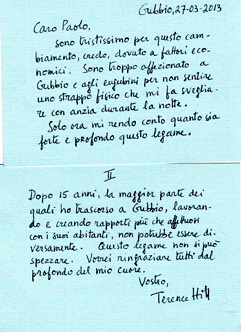 Gubbio, 27-03-2013
Caro Paolo,
sono tristissimo per questo cam-
biamento, credo, dovuto a fattori eco-
nomici. Sono troppo affezionato a
Gubbio e agli eugubini per non sentire
uno strappo fisico che mi fa sveglia-
re con anzia durante la notte.
Solo ora mi rendo conto quanto sia
forte e profondo questo legame.
II
Dopo 15 anni, la maggior parte dei
quali ho trascorso a Gubbio, lavoran-
do e creando rapporti più che affettuosi
con i suoi abitanti, non potrebbe essere di-
versamente. Questo legame non si può
spezzare. Vorrei ringraziare tutti dal
profondo del mio cuore.
Vostro,
Terence Hill